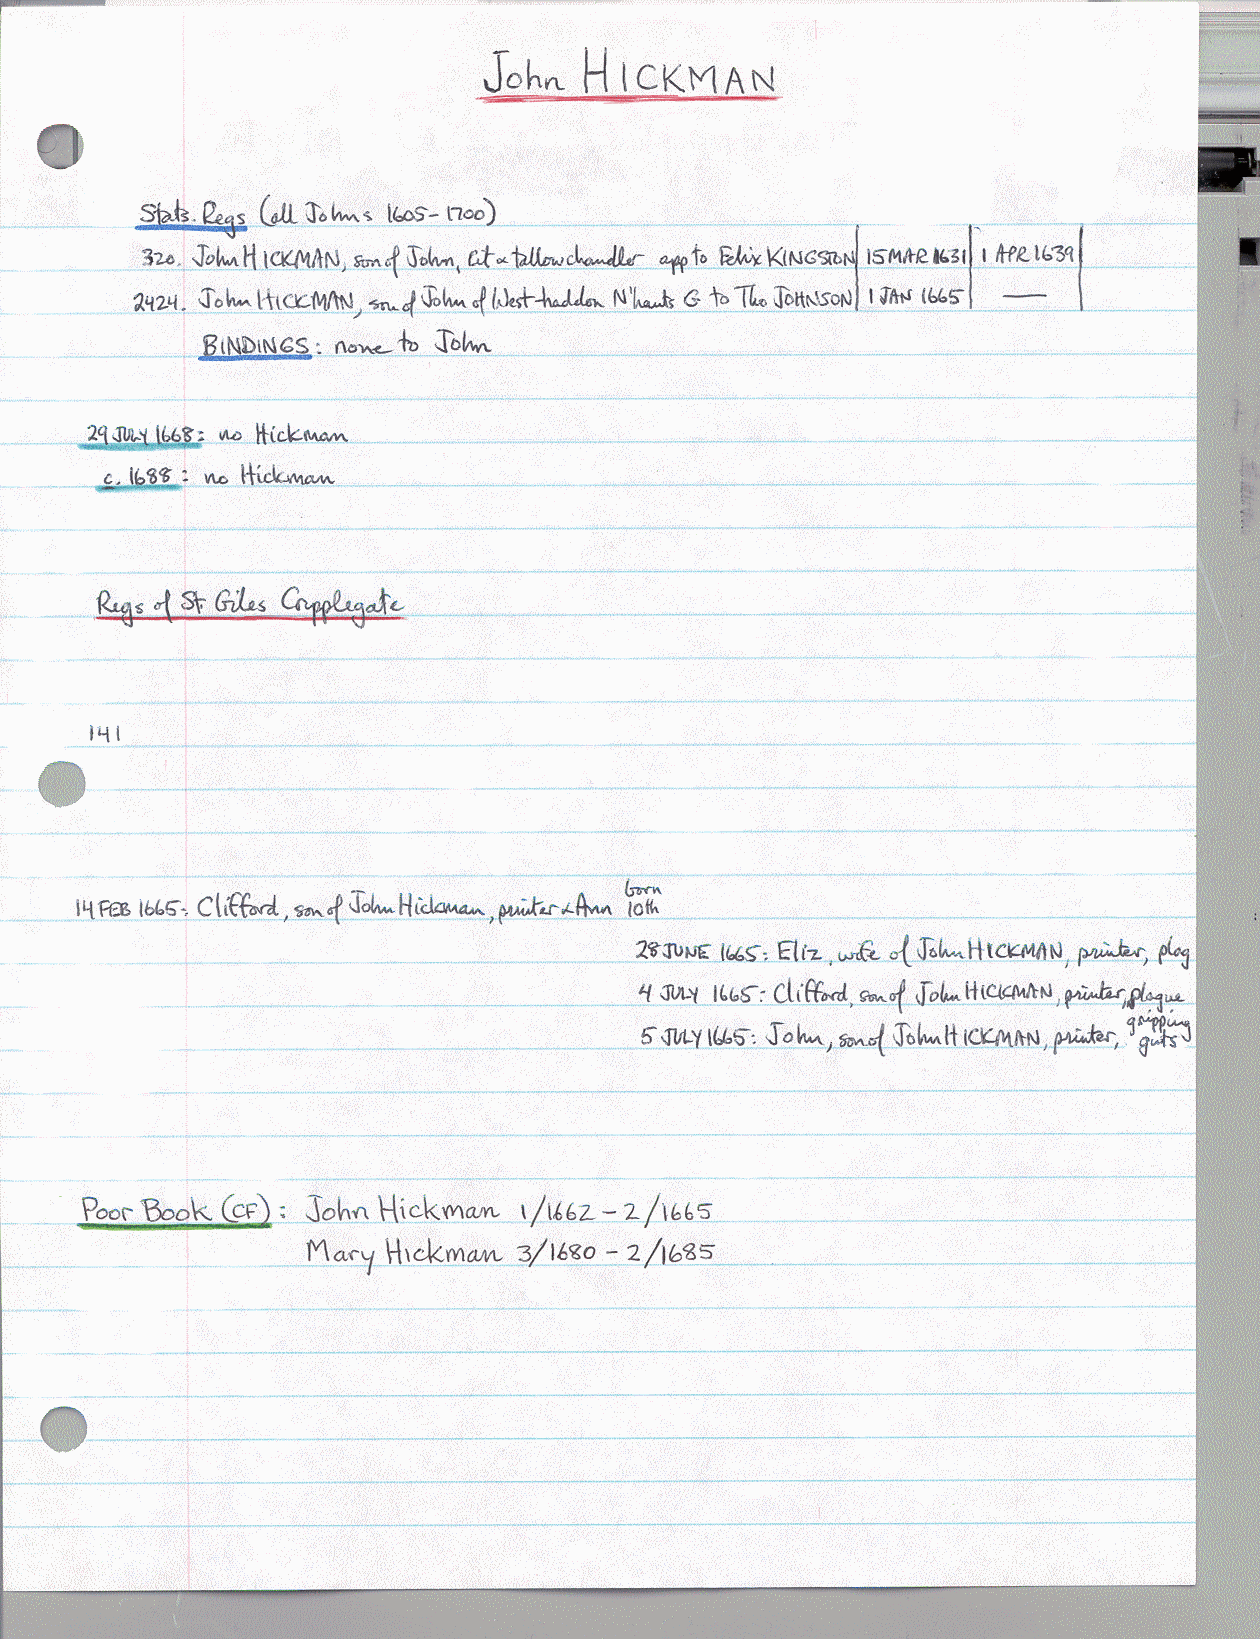 John HICKMAN
Stats. Regs (all Johns 1605-1700)
320. John HICKMAN, son of John, Cit & tallowchandler app to Felix KINGSTON 15 MAR 1631 1 APR 1639
2424. John HICKMAN, son of John of West-haddon N'hants G to Tho JOHNSON 1 JAN 1665 —
BINDINGS: none to John
29 JULY 1668: no Hickman
c. 1688: no Hickman
Regs of St. Giles Cripplegate
141
14 FEB 1665: Clifford, son of John Hickman, printer & Ann born 10th
28 JUNE 1665: Eliz, wife of John HICKMAN, printer, plag
4 JULY 1665: Clifford, son of John HICKMAN, printer, plague
5 JULY 1665: John, son of John HICKMAN, printer, gripping guts
Poor Book (CF): John Hickman 1/1662 - 2/1665
Mary Hickman 3/1680 - 2/1685